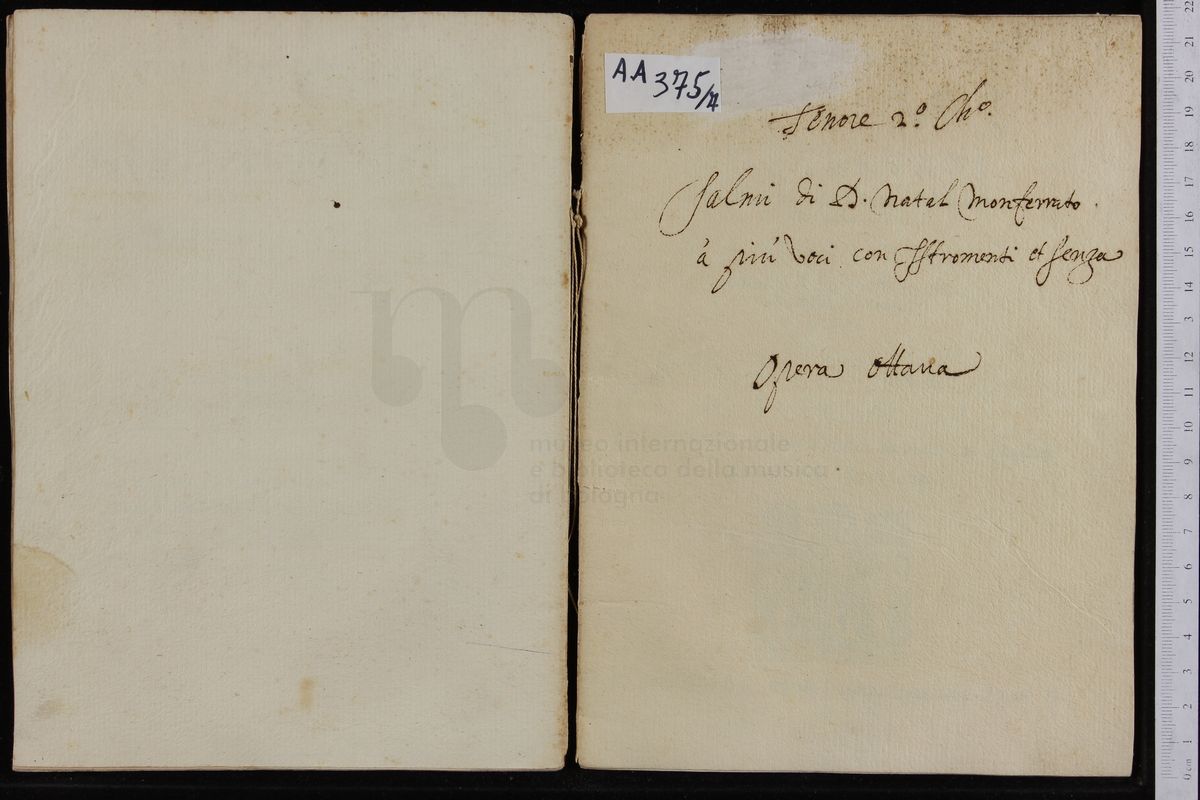 AA 375/7
Tenore 2.º Chº.
Salmi di D. Natal Monferrato.
à più Voci con Istromenti et Senza
Opera Ottaua
museo internazionale
e biblioteca della musica
di bologna
22
21
20
19
18
17
16
15
14
3
12
11
10
9
8
7
6
5
4
3
2
1
0 cm